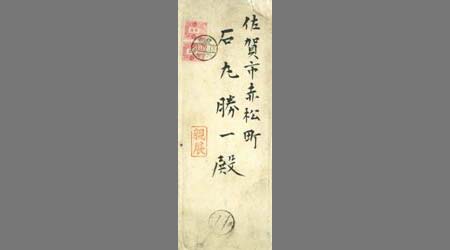 佐賀市赤松町
石丸勝一殿
親展